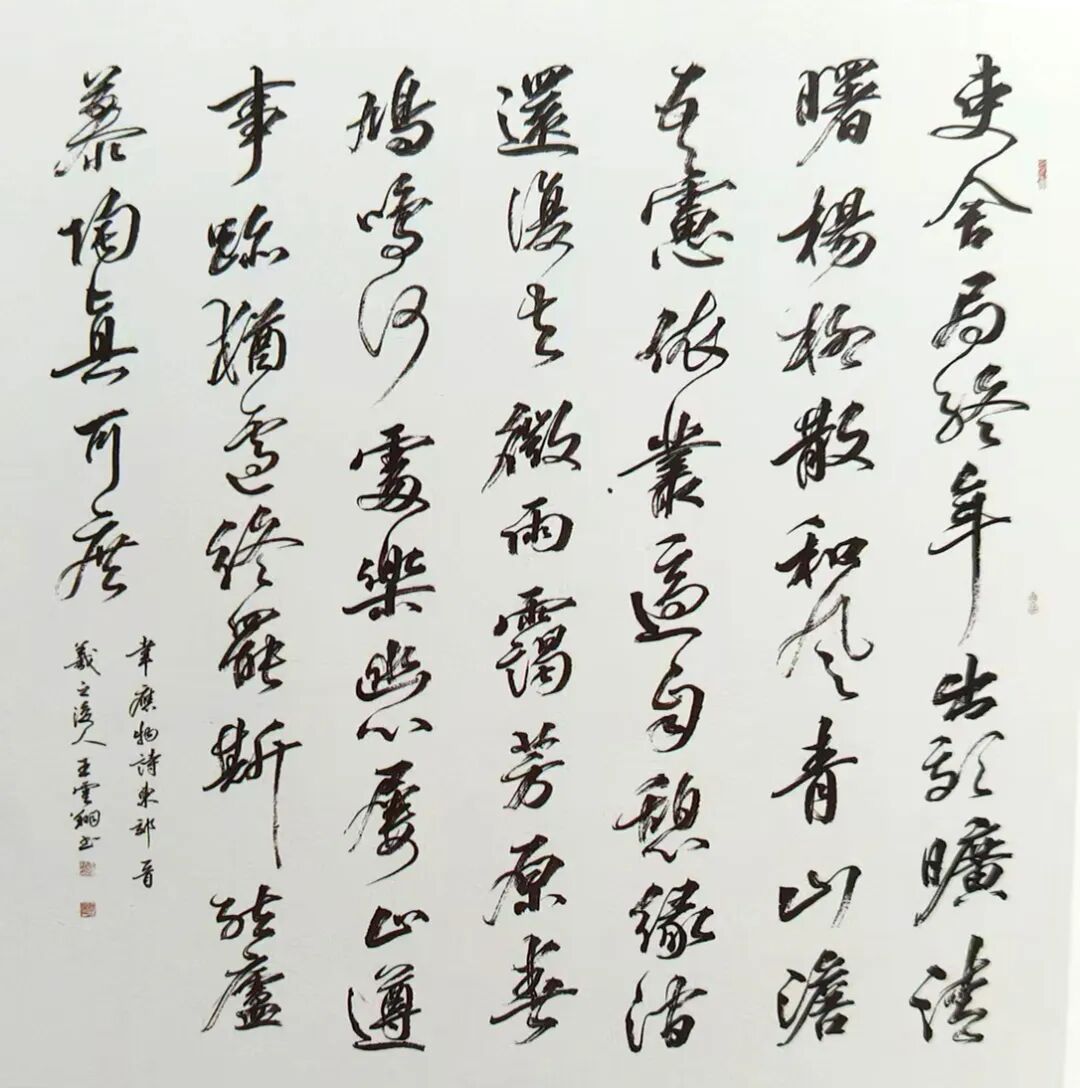 吏舍局終年出郊曠清
曙楊柳散和風青山澹
吾慮依叢適自憩緣澗
還復去微雨靄芳原春
鳩鳴何處樂幽心屢止遵
事跡猶遽終罷斯結廬
慕陶真可庶
韋應物詩東郊一首
羲之後人王雲翔書